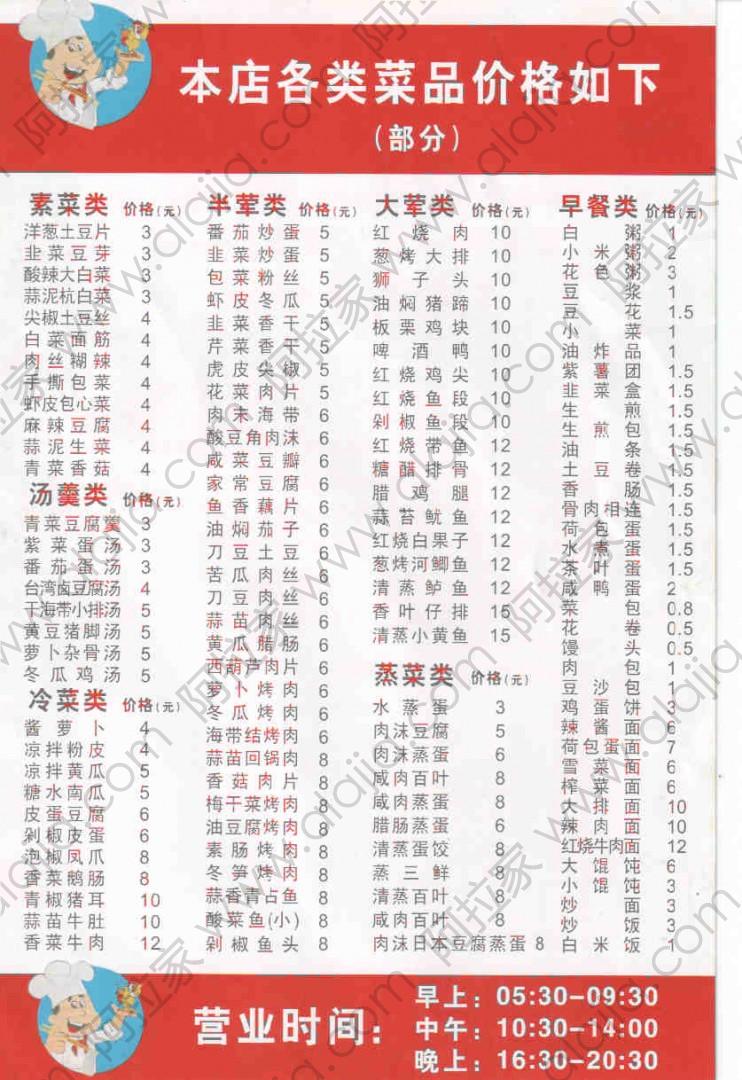 本店各类菜品价格如下
（部分）
素菜类 价格(元)
洋葱土豆片 3
韭菜豆芽 3
酸辣大白菜 3
蒜泥杭白菜 3
尖椒土豆丝 4
白菜面筋 4
肉丝糊辣 4
手撕包菜 4
虾皮包心菜 4
麻辣豆腐 4
蒜泥生菜 4
青菜香菇 4
汤羹类 价格(元)
青菜豆腐羹 3
紫菜蛋汤 3
番茄蛋汤 3
台湾卤豆腐汤 4
干海带小排汤 5
黄豆猪脚汤 5
萝卜杂骨汤 5
冬瓜鸡汤 5
冷菜类 价格(元)
酱萝卜 4
凉拌粉皮 4
凉拌黄瓜 5
糖水南瓜 5
皮蛋豆腐 6
剁椒皮蛋 6
泡椒凤爪 8
香菜鹅肠 8
青椒猪耳 10
蒜苗牛肚 10
香菜牛肉 12
半荤类 价格(元)
番茄炒蛋 5
韭菜炒蛋 5
包菜粉丝 5
虾皮冬瓜 5
韭菜香干 5
芹菜香干 5
虎皮尖椒 5
花菜肉片 5
肉末海带 6
酸豆角肉沫 6
咸菜豆瓣 6
家常豆腐 6
鱼香藕片 6
油焖茄子 6
刀豆土豆 6
苦瓜肉丝 6
刀豆肉丝 6
蒜苗肉丝 6
黄瓜腊肠 6
西葫芦肉片 6
萝卜烤肉 6
冬瓜烤肉 6
海带结烤肉 6
蒜苗回锅肉 8
香菇肉片 8
梅干菜烤肉 8
油豆腐烤肉 8
素肠烤肉 8
冬笋烤肉 8
蒜香青占鱼 8
酸菜鱼(小) 8
剁椒鱼头 8
大荤类 价格(元)
红烧肉 10
葱烤大排 10
狮子头 10
油焖猪蹄 10
板栗鸡块 10
啤酒鸭 10
红烧鸡尖 10
红烧鱼段 10
剁椒鱼段 10
红烧带鱼 12
糖醋排骨 12
腊鸡腿 12
蒜苔鱿鱼 12
红烧白果子 12
葱烤河鲫鱼 12
清蒸鲈鱼 12
香叶仔排 15
清蒸小黄鱼 15
蒸菜类 价格(元)
水蒸蛋 3
肉沫豆腐 5
肉沫蒸蛋 6
咸肉百叶 8
咸肉蒸蛋 8
腊肠蒸蛋 6
清蒸蛋饺 8
蒸三鲜 8
清蒸百叶 8
咸肉百叶 8
肉沫日本豆腐蒸蛋 8
早餐类 价格(元)
白粥 1
小米粥 2
花色粥 3
豆浆 1
豆花 1.5
小菜 1
油炸品 1
紫薯团 1.5
韭菜盒 1.5
生煎 1.5
生煎包 1.5
油条 1.5
土豆卷 1.5
香肠 1.5
骨肉相连 1.5
荷包蛋 1.5
水煮蛋 1.5
茶叶蛋 1.5
咸鸭蛋 2
菜包 0.8
花卷 0.5
馒头 0.5
肉包 1
豆沙包 1
鸡蛋饼 3
辣酱面 6
荷包蛋面 7
雪菜面 6
榨菜面 6
大排面 10
辣肉面 10
红烧牛肉面 12
大馄饨 6
小馄饨 3
炒面 3
炒饭 3
白米饭 1
营业时间：
早上：05:30-09:30
中午：10:30-14:00
晚上：16:30-20:30
阿拉家 www.alajia.com